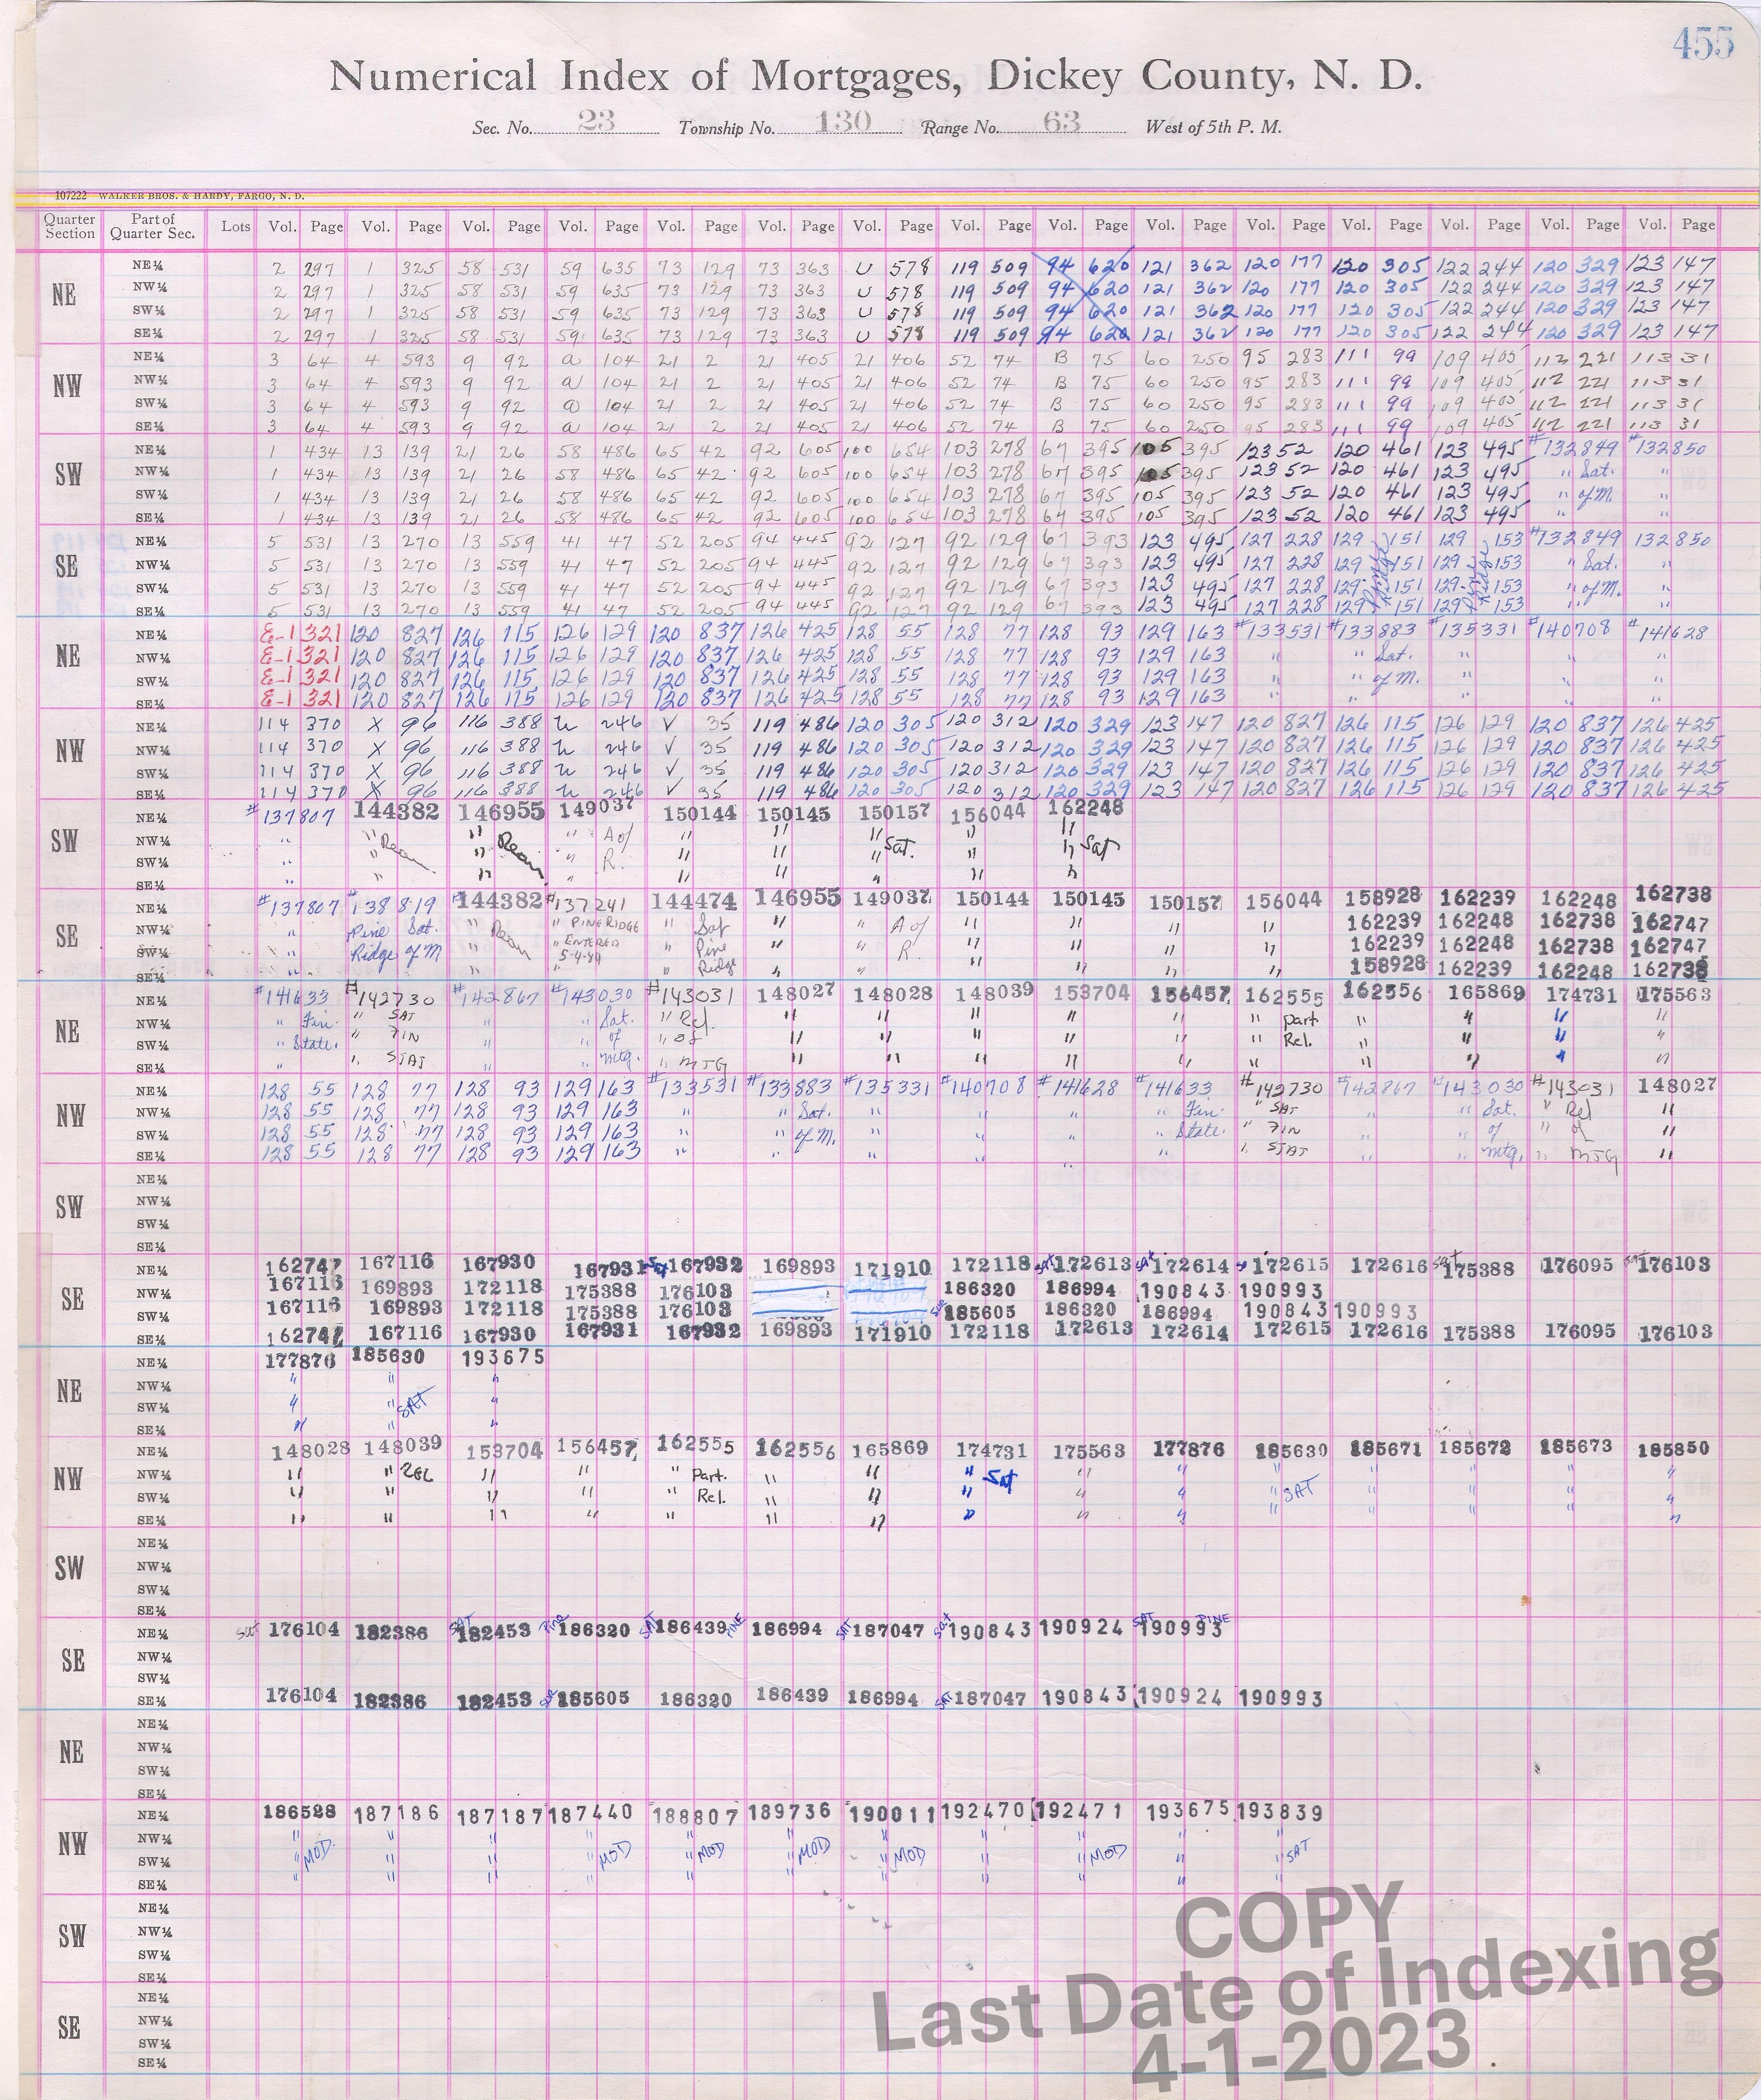 455
Numerical Index of Mortgages, Dickey County, N. D.
Sec. No. 23 Township No. 130 Range No. 63 West of 5th P. M.
107222 WALKER BROS. & HARDY, FARGO, N. D.
Quarter Section Part of Quarter Sec. Lots Vol. Page Vol. Page Vol. Page Vol. Page Vol. Page Vol. Page Vol. Page Vol. Page Vol. Page Vol. Page Vol. Page Vol. Page Vol. Page Vol. Page Vol. Page
NE
NE¼ 2 297 1 325 58 531 59 635 73 129 73 363 U 578 119 509 94 620 121 362 120 177 120 305 122 244 120 329 123 147
NW¼ 2 297 1 325 58 531 59 635 73 129 73 363 U 578 119 509 94 620 121 362 120 177 120 305 122 244 120 329 123 147
SW¼ 2 297 1 325 58 531 59 635 73 129 73 363 U 578 119 509 94 620 121 362 120 177 120 305 122 244 120 329 123 147
SE¼ 2 297 1 325 58 531 59 635 73 129 73 363 U 578 119 509 94 620 121 362 120 177 120 305 122 244 120 329 123 147
NW
NE¼ 3 64 4 593 9 92 a 104 21 2 21 405 21 406 52 74 B 75 60 250 95 283 111 99 109 405 112 221 113 31
NW¼ 3 64 4 593 9 92 a 104 21 2 21 405 21 406 52 74 B 75 60 250 95 283 111 99 109 405 112 221 113 31
SW¼ 3 64 4 593 9 92 a 104 21 2 21 405 21 406 52 74 B 75 60 250 95 283 111 99 109 405 112 221 113 31
SE¼ 3 64 4 593 9 92 a 104 21 2 21 405 21 406 52 74 B 75 60 250 95 283 111 99 109 405 112 221 113 31
SW
NE¼ 1 434 13 139 21 26 58 486 65 42 92 605 100 654 103 278 67 395 105 395 123 52 120 461 123 495 #132849 #132850
NW¼ 1 434 13 139 21 26 58 486 65 42 92 605 100 654 103 278 67 395 105 395 123 52 120 461 123 495 " Sat. "
SW¼ 1 434 13 139 21 26 58 486 65 42 92 605 100 654 103 278 67 395 105 395 123 52 120 461 123 495 " of M. "
SE¼ 1 434 13 139 21 26 58 486 65 42 92 605 100 654 103 278 67 395 105 395 123 52 120 461 123 495 " "
SE
NE¼ 5 531 13 270 13 559 41 47 52 205 94 445 92 127 92 129 67 393 123 495 127 228 129 151 129 153 #132849 132850
NW¼ 5 531 13 270 13 559 41 47 52 205 94 445 92 127 92 129 67 393 123 495 127 228 129 151 129 153 " Sat. "
SW¼ 5 531 13 270 13 559 41 47 52 205 94 445 92 127 92 129 67 393 123 495 127 228 129 151 129 153 " of M. "
SE¼ 5 531 13 270 13 559 41 47 52 205 94 445 92 127 92 129 67 393 123 495 127 228 129 151 129 153 " "
Pine Ridge Pine Ridge
NE
NE¼ E-1 321 120 827 126 115 126 129 120 837 126 425 128 55 128 77 128 93 129 163 #133531 #133883 #135331 #140708 #141628
NW¼ E-1 321 120 827 126 115 126 129 120 837 126 425 128 55 128 77 128 93 129 163 " " Sat. " " "
SW¼ E-1 321 120 827 126 115 126 129 120 837 126 425 128 55 128 77 128 93 129 163 " " of M. " " "
SE¼ E-1 321 120 827 126 115 126 129 120 837 126 425 128 55 128 77 128 93 129 163 " " " " "
NW
NE¼ 114 370 X 96 116 388 246 V 35 119 486 120 305 120 312 120 329 123 147 120 827 126 115 126 129 120 837 126 425
NW¼ 114 370 X 96 116 388 246 V 35 119 486 120 305 120 312 120 329 123 147 120 827 126 115 126 129 120 837 126 425
SW¼ 114 370 X 96 116 388 246 V 35 119 486 120 305 120 312 120 329 123 147 120 827 126 115 126 129 120 837 126 425
SE¼ 114 370 X 96 116 388 246 V 35 119 486 120 305 120 312 120 329 123 147 120 827 126 115 126 129 120 837 126 425
SW
NE¼ #137807 144382 146955 149037 150144 150145 150157 156044 162248
NW¼ " " " " A of " " " " "
SW¼ " " Ream " Ream " R. " " " Sat. " " Sat
SE¼ " " " " " " " " "
SE
NE¼ #137807 #138819 #144382 #137241 144474 146955 149037 150144 150145 150157 156044 158928 162239 162248 162738
NW¼ " Pine Sat. " Ream " PINE RIDGE " Sat " " A of " " " " 162239 162248 162738 162747
SW¼ " Ridge of M " " ENTERED 5-4-84 " Pine " " R. " " " " 162239 162248 162738 162747
SE¼ " " " Ridge " " " " " " 158928 162239 162248 162738
NE
NE¼ #141633 #142730 #142867 #143030 #143031 148027 148028 148039 153704 156457 162555 162556 165869 174731 175563
NW¼ " Fin. " SAT " " Sat. " Rel. " " " " " " part " " " "
SW¼ " State. " FIN " " of " of " " " " " " Rel. " " " "
SE¼ " " STAT " " mtg. " MTG " " " " " " " " " "
NW
NE¼ 128 55 128 77 128 93 129 163 #133531 #133883 #135331 #140708 #141628 #141633 #142730 #142867 #143030 #143031 148027
NW¼ 128 55 128 77 128 93 129 163 " " Sat. " " " " Fin. " SAT " " Sat. " Rel "
SW¼ 128 55 128 77 128 93 129 163 " " of M. " " " " State. " FIN " " of " of "
SE¼ 128 55 128 77 128 93 129 163 " " " " " " " STAT " " mtg. " MTG "
SW
NE¼
NW¼
SW¼
SE¼
SE
NE¼ 162747 167116 167930 167931 Sat 167932 169893 171910 172118 Sat 172613 Sat 172614 172615 172616 Sat 175388 176095 Sat 176103
NW¼ 167116 169893 172118 175388 176103 186320 186994 190843 190993
SW¼ 167116 169893 172118 175388 176103 185605 186320 186994 190843 190993
SE¼ 162747 167116 167930 167931 167932 169893 171910 172118 172613 172614 172615 172616 175388 176095 176103
NE
NE¼ 177876 185630 193675
NW¼ " " "
SW¼ " " SAT "
SE¼ " " "
NW
NE¼ 148028 148039 153704 156457 162555 162556 165869 174731 175563 177876 185630 185671 185672 185673 185850
NW¼ " " REL " " " Part. " " " Sat " " " " " " "
SW¼ " " " " " Rel. " " " " " " SAT " " " "
SE¼ " " " " " " " " " " " " " " "
SW
NE¼
NW¼
SW¼
SE¼
SE
NE¼ Sat 176104 182386 SAT 182453 Pine 186320 SAT 186439 PINE 186994 SAT 187047 Sat 190843 190924 SAT 190993 PINE
NW¼
SW¼
SE¼ 176104 182386 182453 185605 186320 186439 186994 SAT 187047 190843 190924 190993
NE
NE¼
NW¼
SW¼
SE¼
NW
NE¼ 186528 187186 187187 187440 188807 189736 190011 192470 192471 193675 193839
NW¼ " " " " " " " " " " "
SW¼ " MOD " " " MOD " MOD " MOD " MOD " " MOD " " SAT
SE¼ " " " " " " " " " " "
SW
NE¼
NW¼
SW¼
SE¼
SE
NE¼
NW¼
SW¼
SE¼
COPY
Last Date of Indexing
4-1-2023